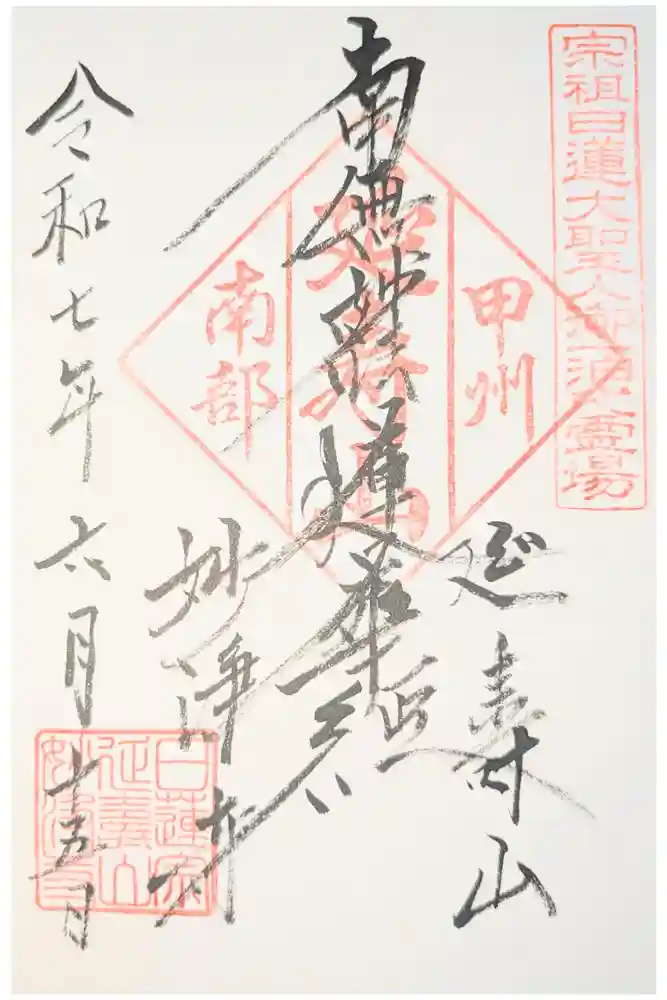 宗祖日蓮大聖人御一泊之霊場
甲州
延壽山
南部
延壽山
南無妙法蓮華経
妙浄寺
令和七年六月十五日
日蓮宗
延壽山
妙浄寺